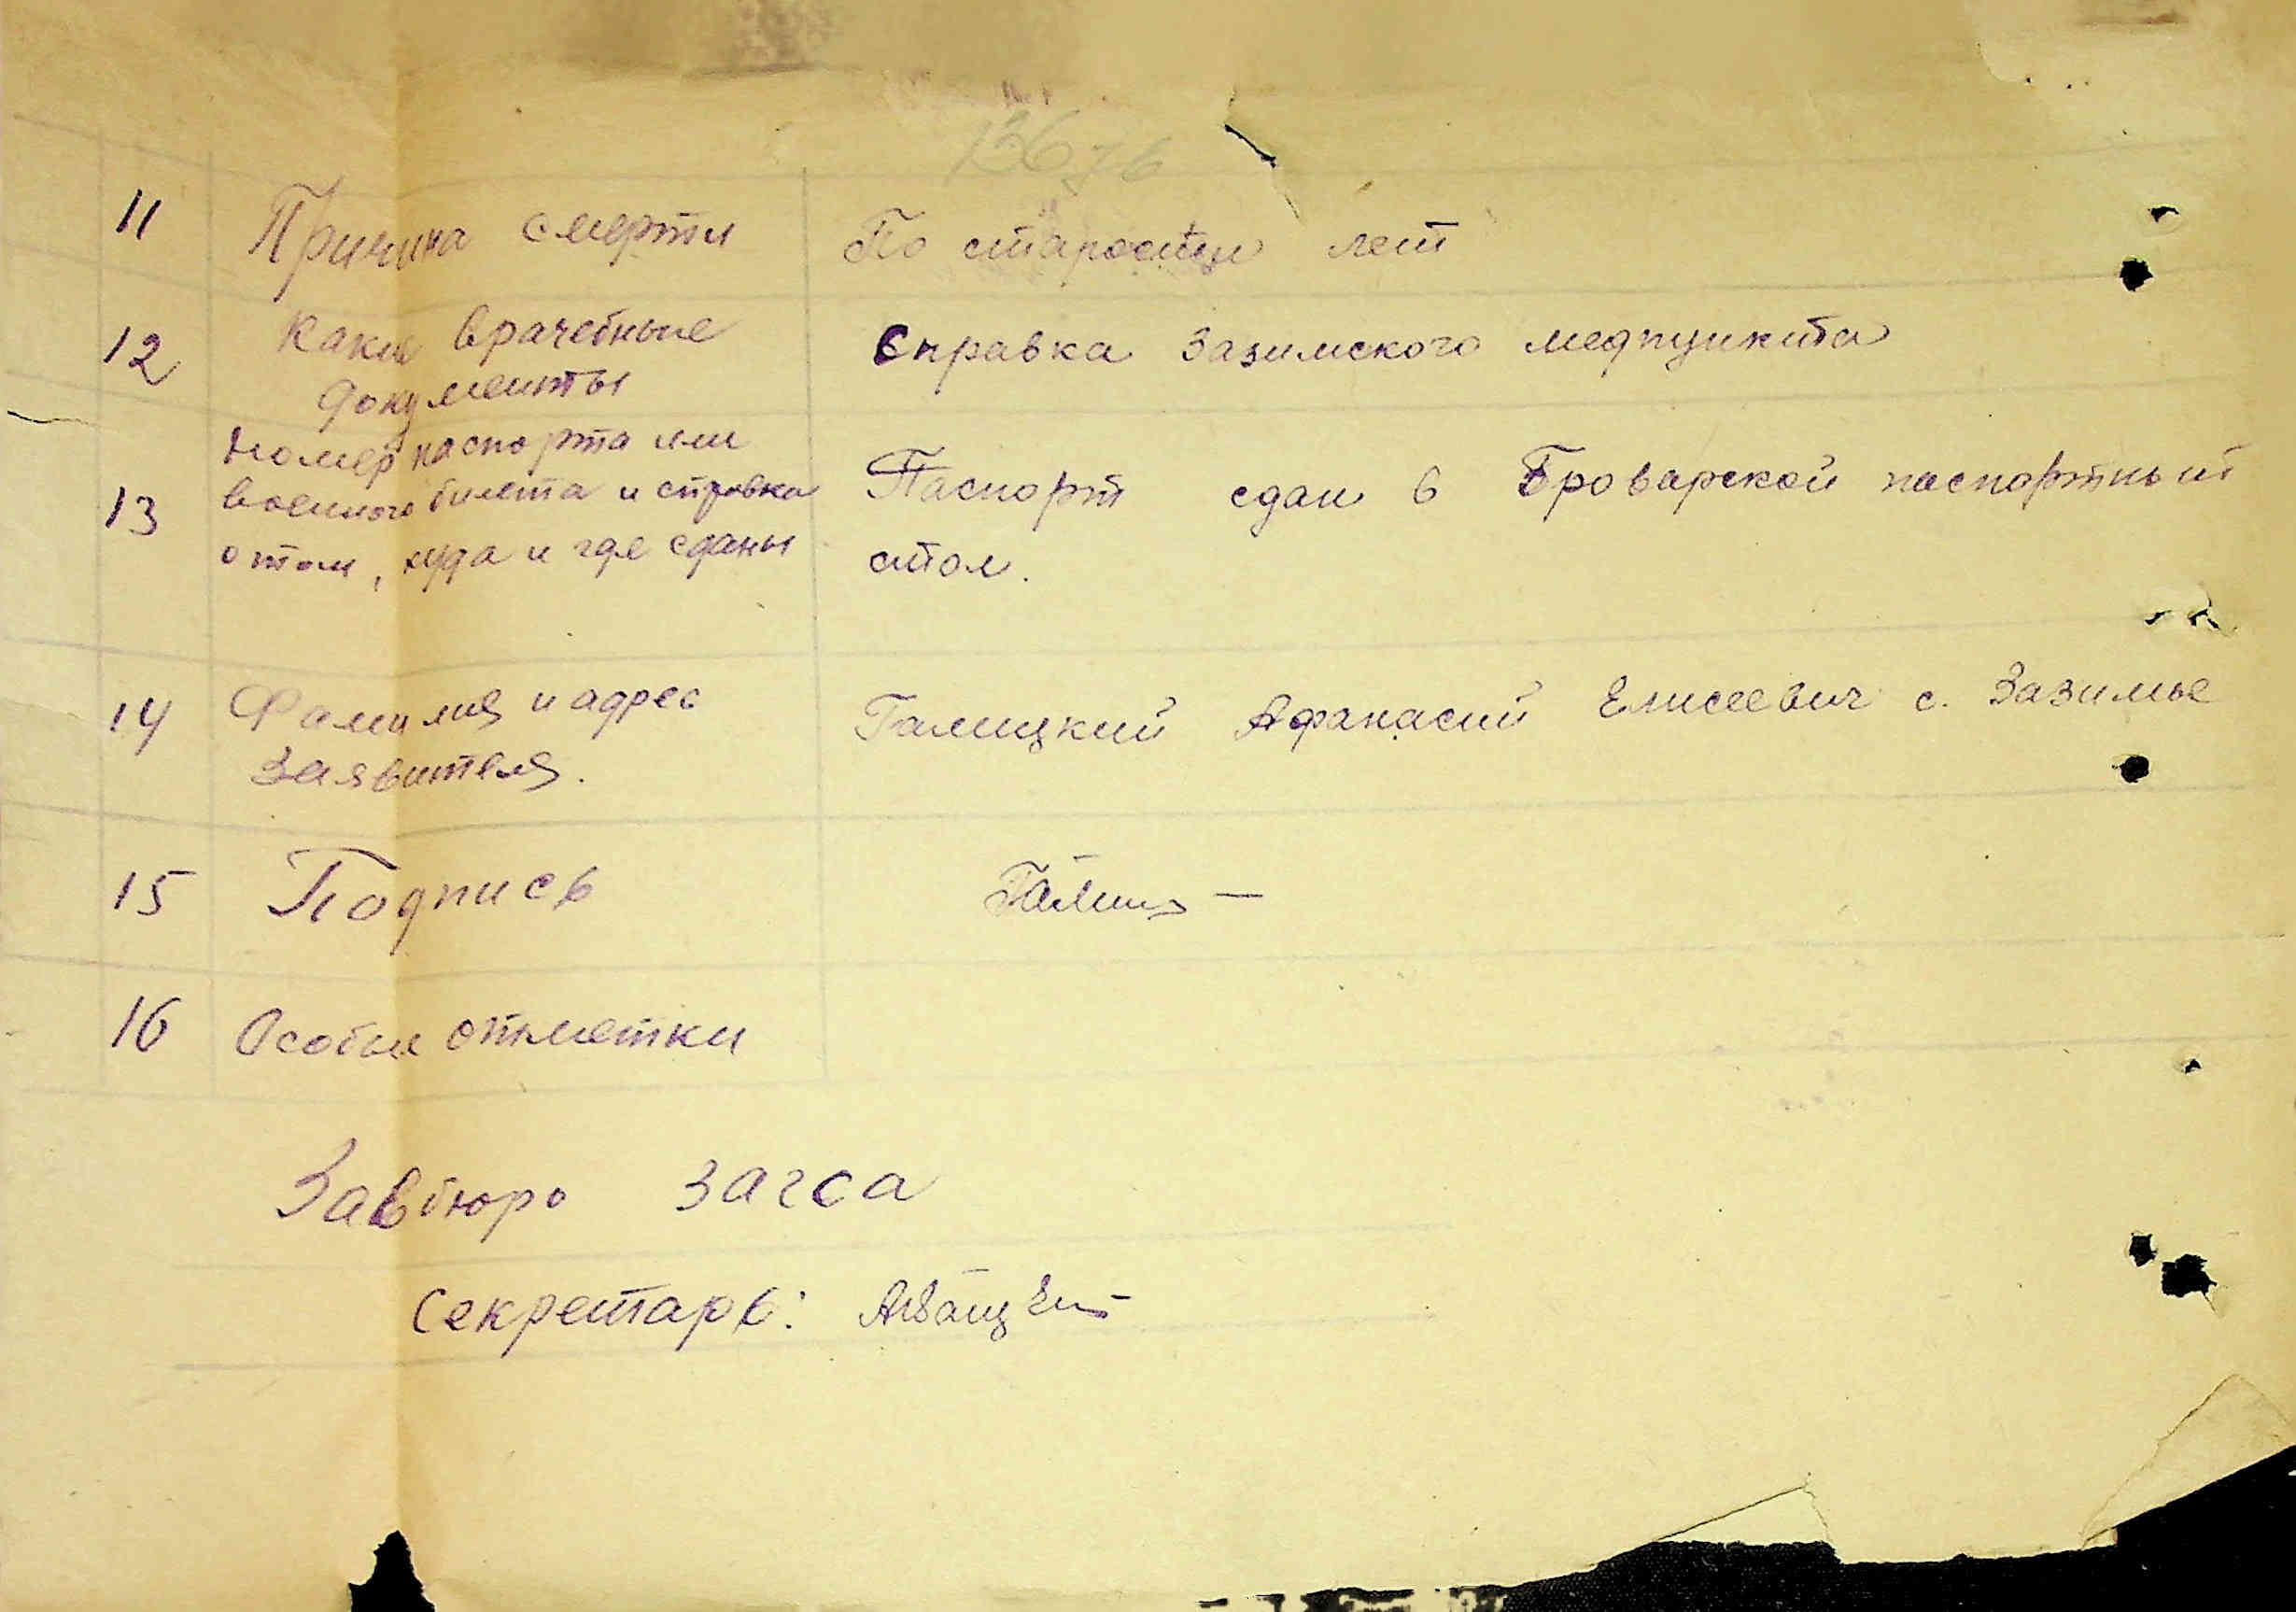 136 зв
11 Причина смерти По старости лет
12 Какие врачебные Справка Зазимского медпункта
документы
Номер паспорта или
13 военного билета и справка Паспорт сдан в Броварской паспортный
о том, куда и где сданы стол.
14 Фамилия и адрес Галицкий Афанасий Елисеевич с. Зазимье
заявителя.
15 Подпись Галиц
16 Особые отметки
Завбюро загса
Секретарь: